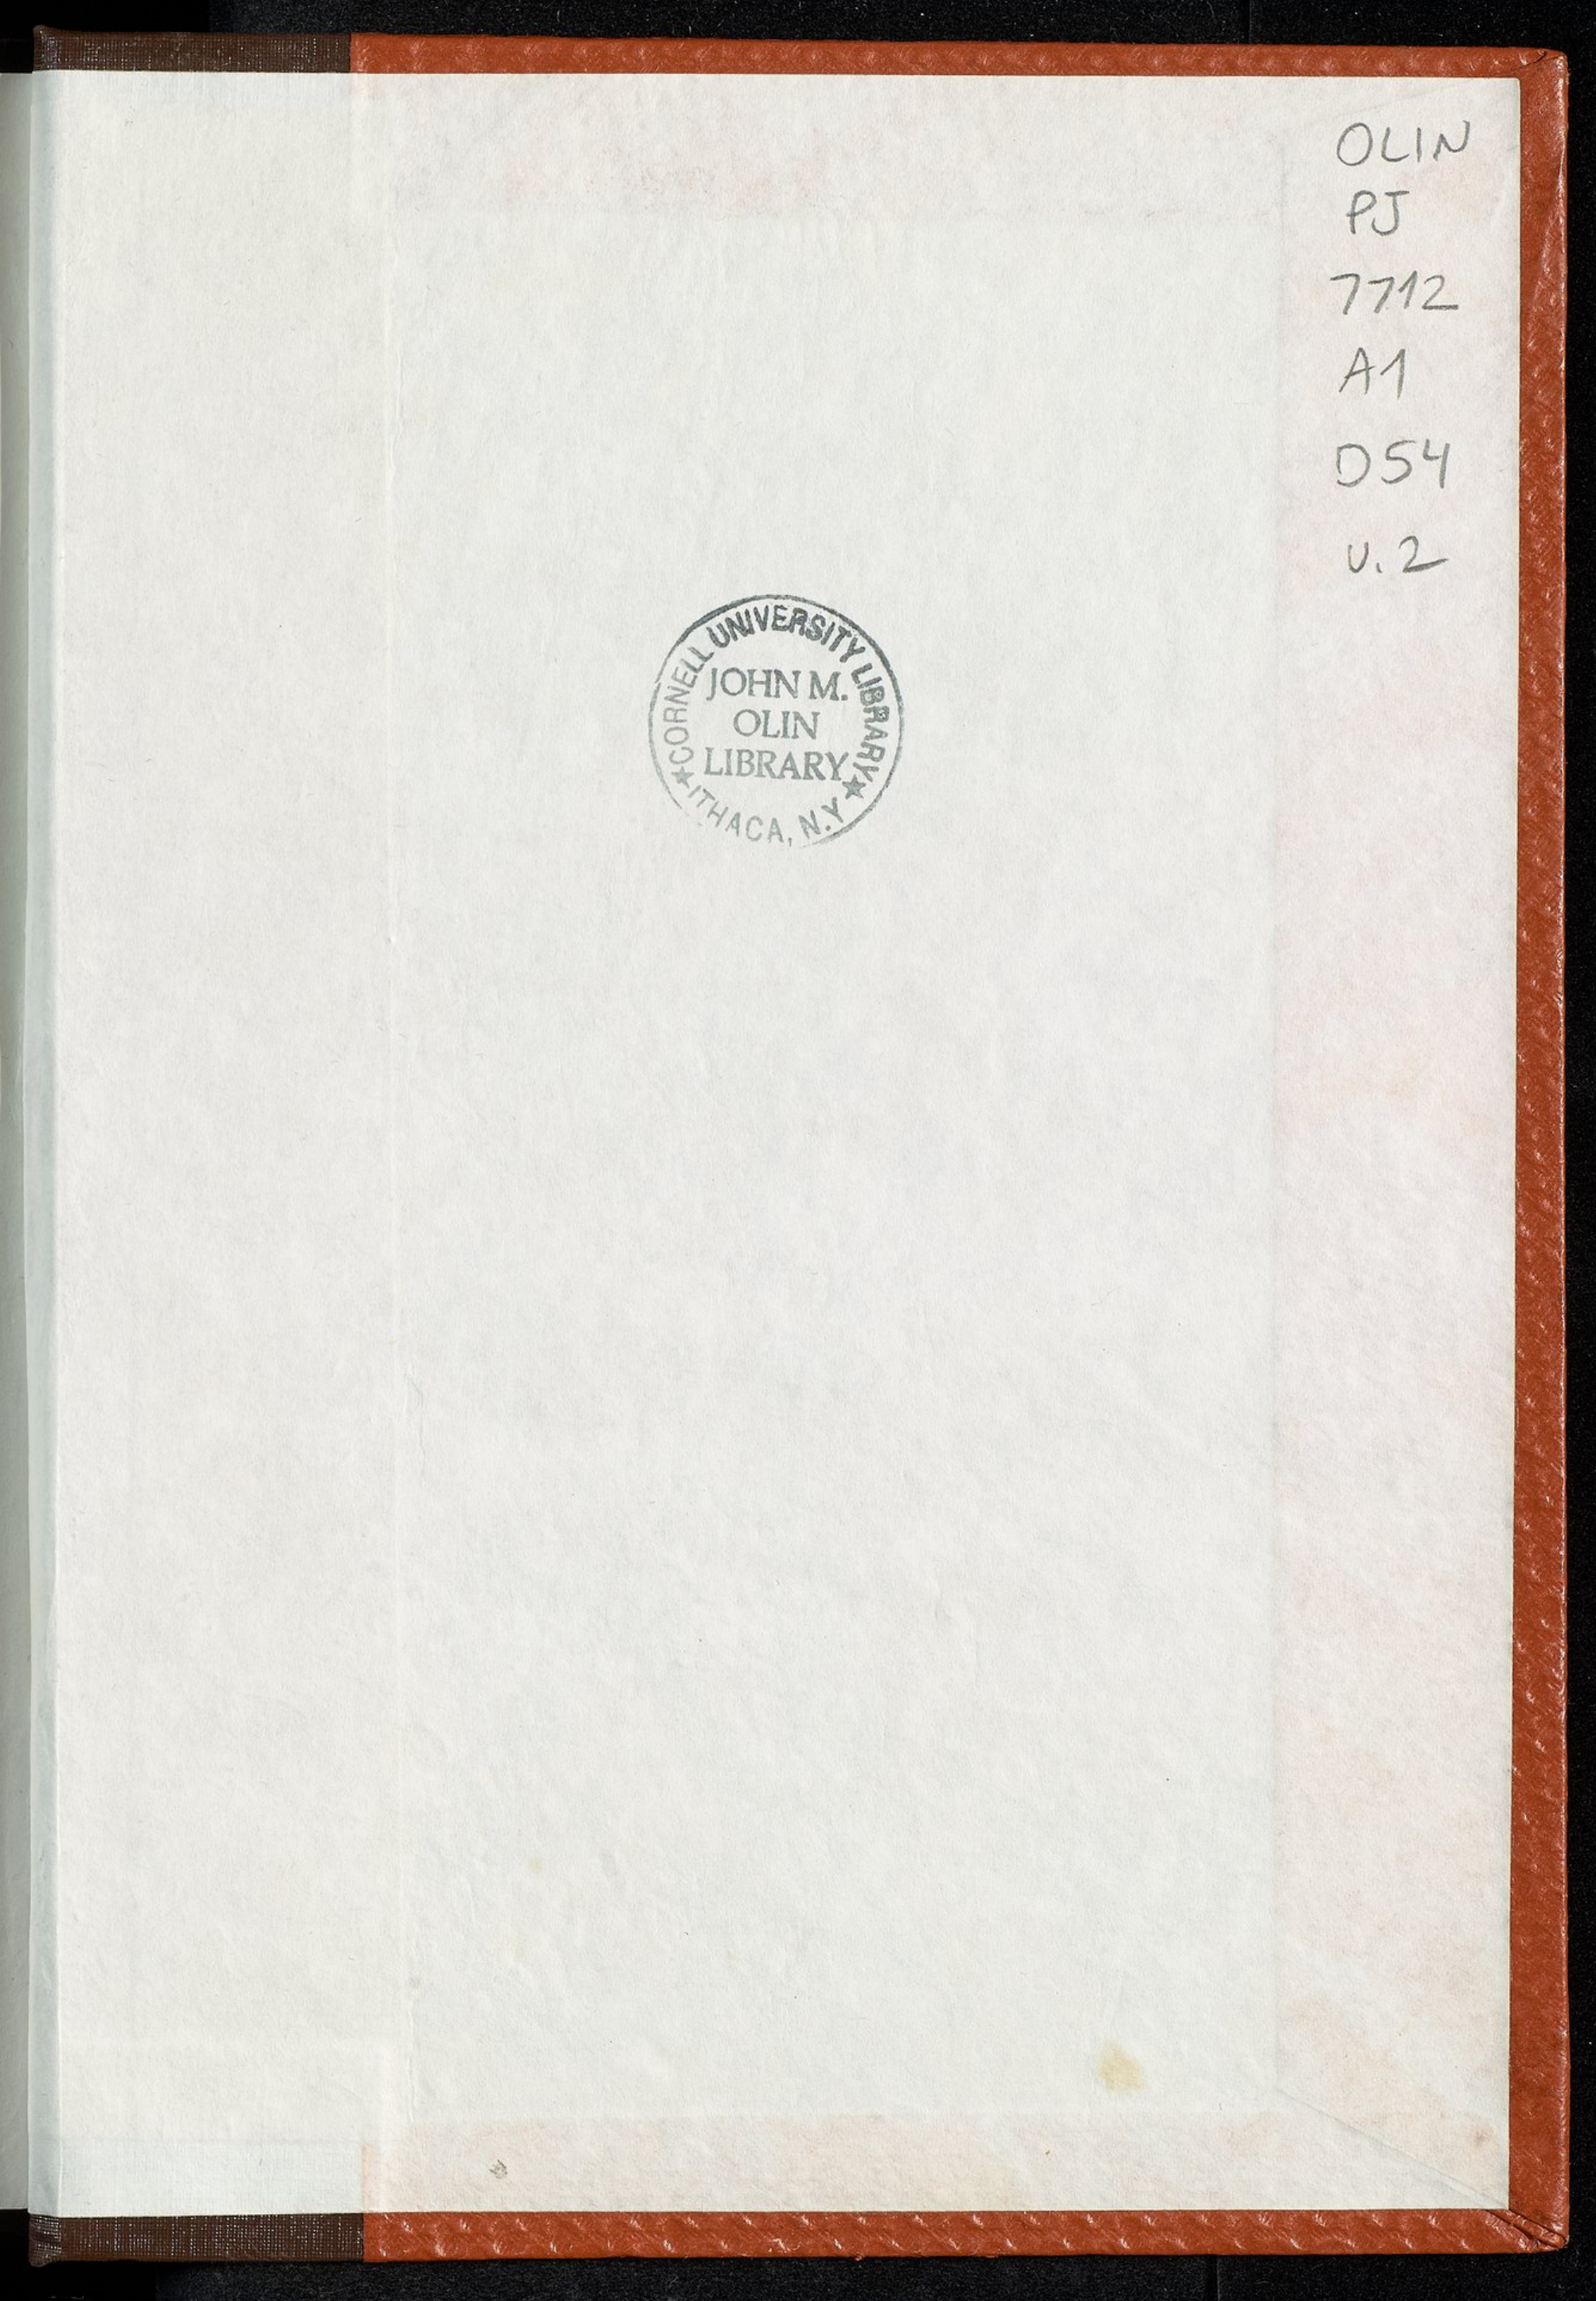 OLIN
PJ
7712
A1
D54
v. 2
CORNELL UNIVERSITY LIBRARY
JOHN M.
OLIN
LIBRARY
ITHACA, N.Y